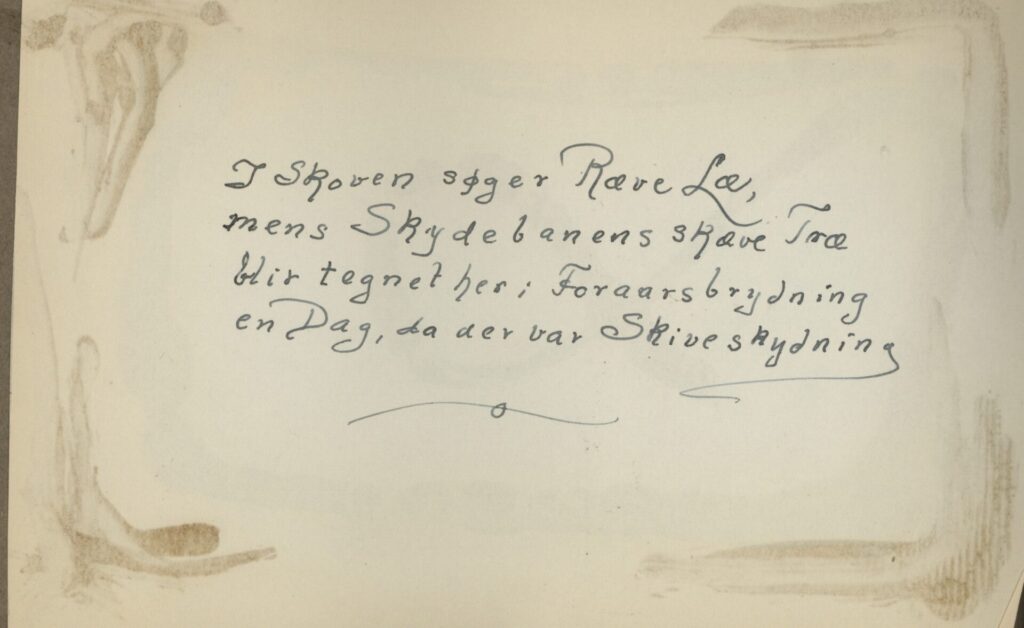 I Skoven søger Ræve Læ,
mens Skydebanens skæve Træ
blir tegnet her i Foraarsbrydning
en Dag, da der var Skiveskydning